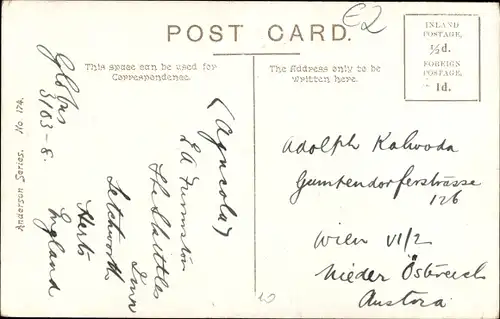 £2
POST CARD.
INLAND
POSTAGE,
½d.
FOREIGN
POSTAGE,
1d.
This space can be used for
Correspondence.
The Address only to be
written here.
Anderson Series. No. 174.
Globus
3163-8.
(Agricola)
The Skittles
Inn
Letchworth
Herts
England
Adolph Kalwoda
Gumtendorferstrasse
126
Wien VI/2
Nieder Östreich
Austria
10